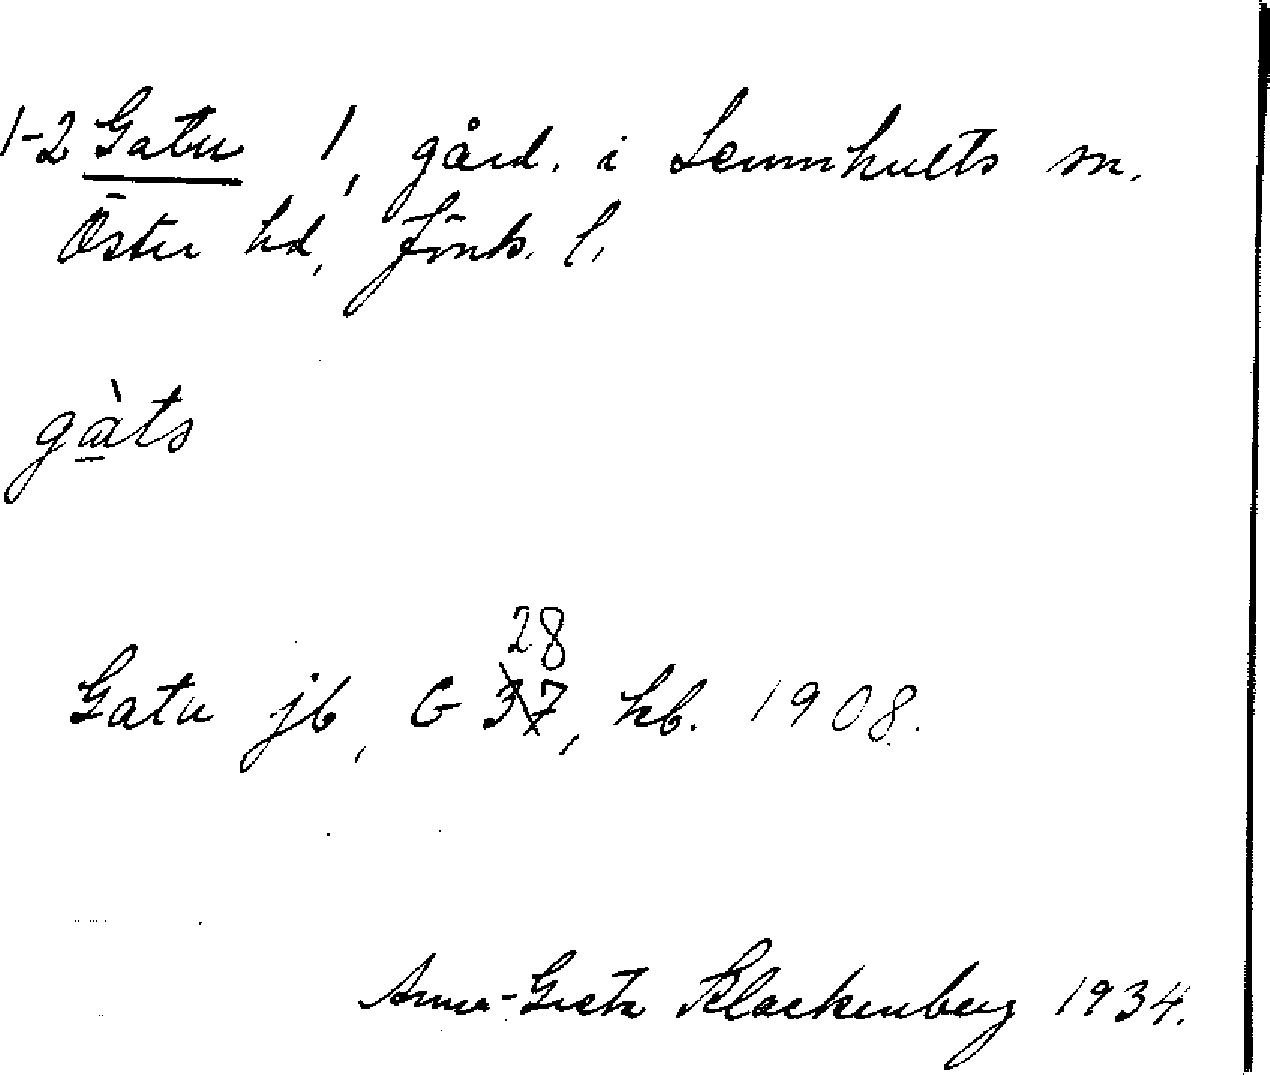 1-2 Gatu 1, gård. i Lemnhults sn.
Öster hd, Jönk. l.
gàts
28
Gatu jb, G 37, kb. 1908.
Anna-Greta Klackenberg 1934.